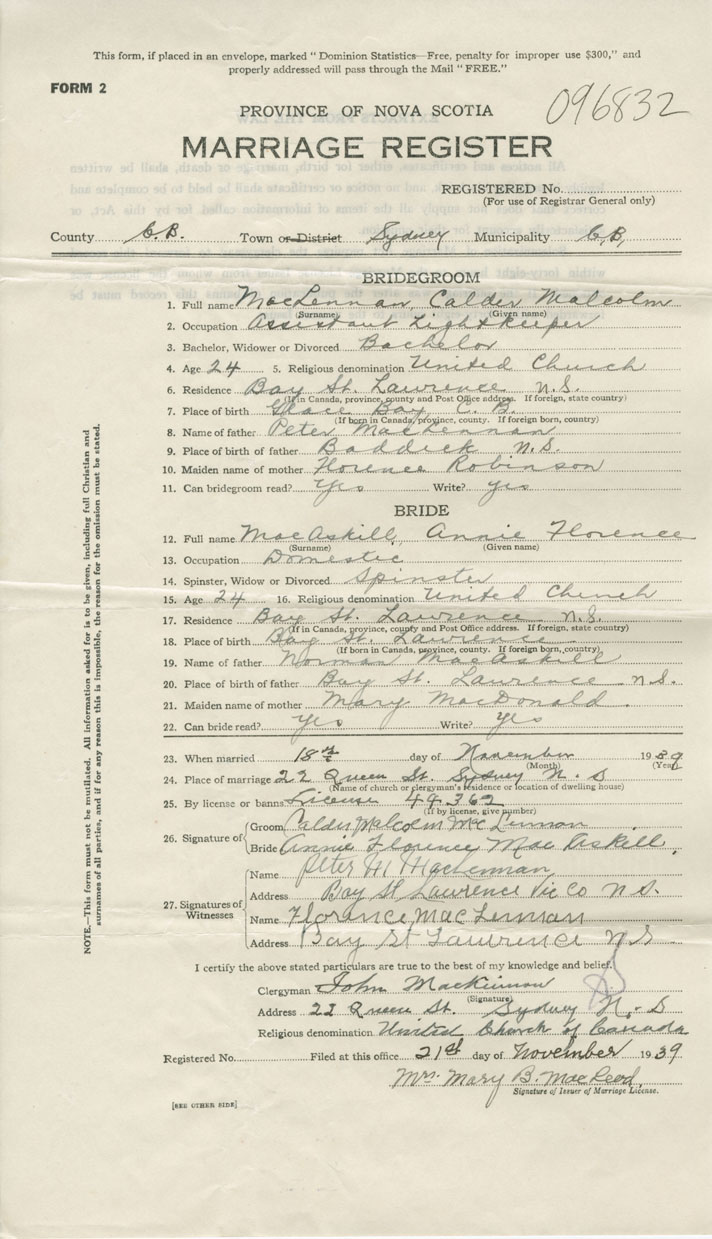 This form, if placed in an envelope, marked "Dominion Statistics—Free, penalty for improper use $300," and
properly addressed will pass through the Mail "FREE."
FORM 2
096832
PROVINCE OF NOVA SCOTIA
MARRIAGE REGISTER
REGISTERED No.
(For use of Registrar General only)
County C.B. Town or District Sydney Municipality C.B.
BRIDEGROOM
1. Full name MacLennan, Calder Malcolm
(Surname) (Given name)
2. Occupation Assistant Lightkeeper
3. Bachelor, Widower or Divorced Bachelor
4. Age 24 5. Religious denomination United Church
6. Residence Bay St. Lawrence N.S.
(If in Canada, province, county and Post Office address. If foreign, state country)
7. Place of birth Glace Bay, C.B.
(If born in Canada, province, county. If foreign born, country)
8. Name of father Peter MacLennan
9. Place of birth of father Baddeck N.S.
10. Maiden name of mother Florence Robinson
11. Can bridegroom read? Yes Write? yes
BRIDE
12. Full name MacAskill, Annie Florence
(Surname) (Given name)
13. Occupation Domestic
14. Spinster, Widow or Divorced Spinster
15. Age 24 16. Religious denomination United Church
17. Residence Bay St. Lawrence N.S.
(If in Canada, province, county and Post Office address. If foreign, state country)
18. Place of birth Bay St. Lawrence
(If born in Canada, province, county. If foreign born, country)
19. Name of father Norman MacAskill
20. Place of birth of father Bay St. Lawrence n.s.
21. Maiden name of mother Mary MacDonald
22. Can bride read? yes Write? yes
23. When married 18th day of November 1939
(Month) (Year)
24. Place of marriage 22 Queen St. Sydney N.S
(Name of church or clergyman's residence or location of dwelling house)
25. By license or banns License 49362
(If by license, give number)
26. Signature of
Groom Calder Malcolm MacLennan
Bride Annie Florence MacAskill.
27. Signatures of Witnesses
Name Peter M MacLennan
Address Bay St Lawrence Vic Co N S.
Name Florance MacLennan
Address Bay St Lawrence N S
I certify the above stated particulars are true to the best of my knowledge and belief.
Clergyman John MacKinnon
(Signature)
Address 22 Queen St. Sydney N.S
Religious denomination United Church of Canada
Registered No. Filed at this office 21st day of November 1939
Mrs. Mary B. MacLeod
Signature of Issuer of Marriage License.
[SEE OTHER SIDE]
NOTE.—This form must not be mutilated. All information asked for is to be given, including full Christian and
surnames of all parties, and if for any reason this is impossible, the reason for the omission must be stated.